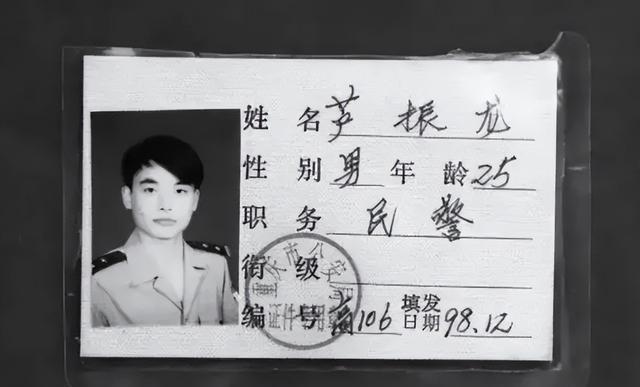 姓名 芦振龙
性别 男 年龄 25
职务 民警
衔级
编号 106 填发日期 98.12
重庆市公安局
证件专用章